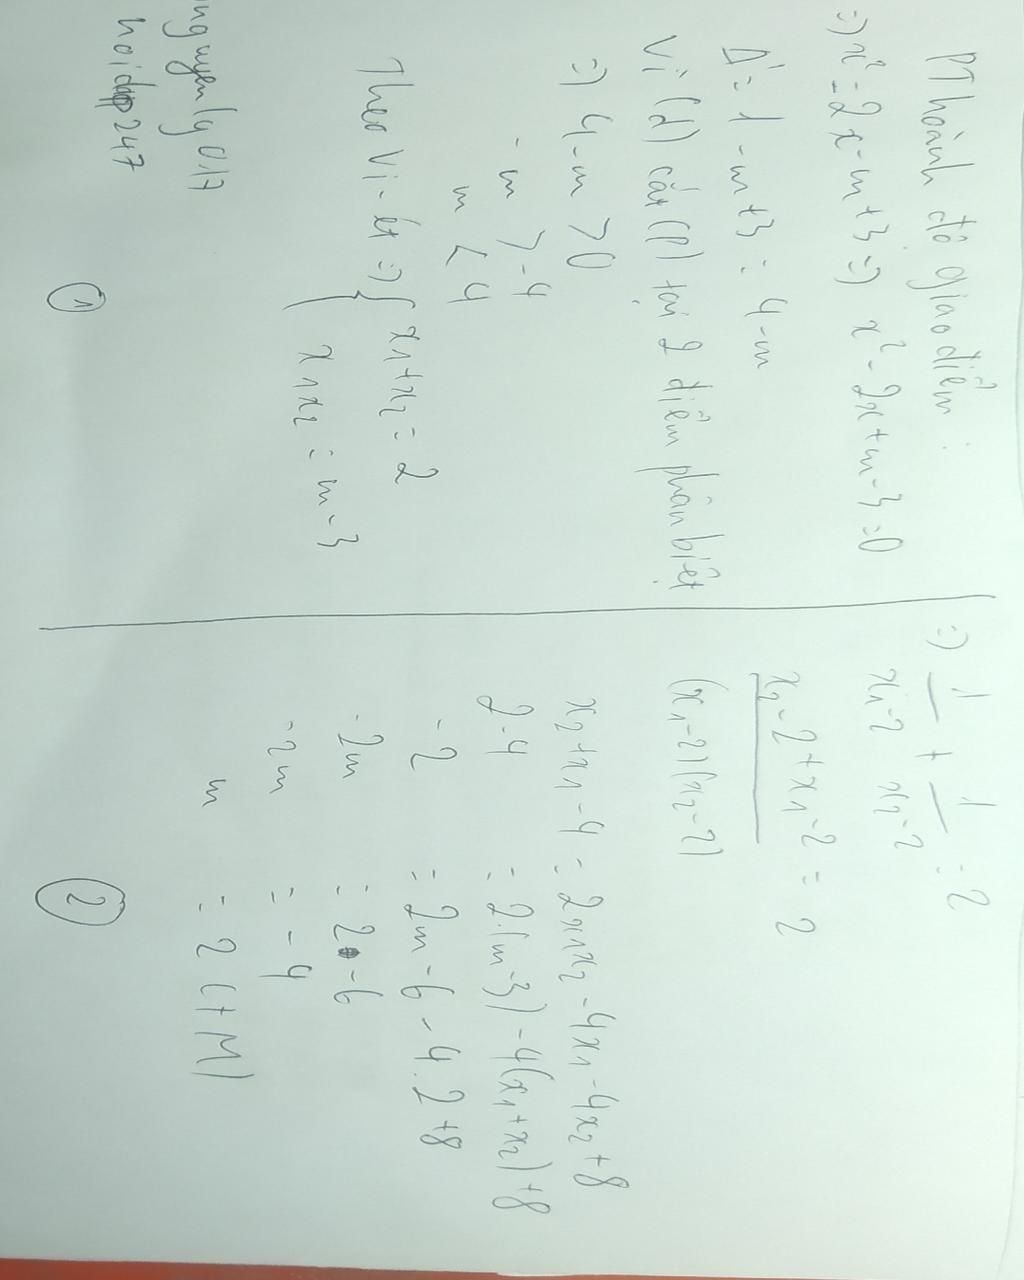 PT hoành độ giao điểm:
=) x² = 2x - m + 3 =) x² - 2x + m - 3 = 0
Δ' = 1 - m + 3 = 4 - m
Vì (d) cắt (P) tại 2 điểm phân biệt
=) 4 - m > 0
- m > -4
m < 4
Theo Vi-ét =) { x1 + x2 = 2
x1x2 = m - 3
nguyenly017
hoidap247
1
=) 1/(x1 - 2) + 1/(x2 - 2) = 2
(x2 - 2 + x1 - 2)/((x1 - 2)(x2 - 2)) = 2
x2 + x1 - 4 = 2x1x2 - 4x1 - 4x2 + 8
2 - 4 = 2.(m - 3) - 4(x1 + x2) + 8
- 2 = 2m - 6 - 4.2 + 8
- 2m = 2 - 6
- 2m = - 4
m = 2 (tM)
2